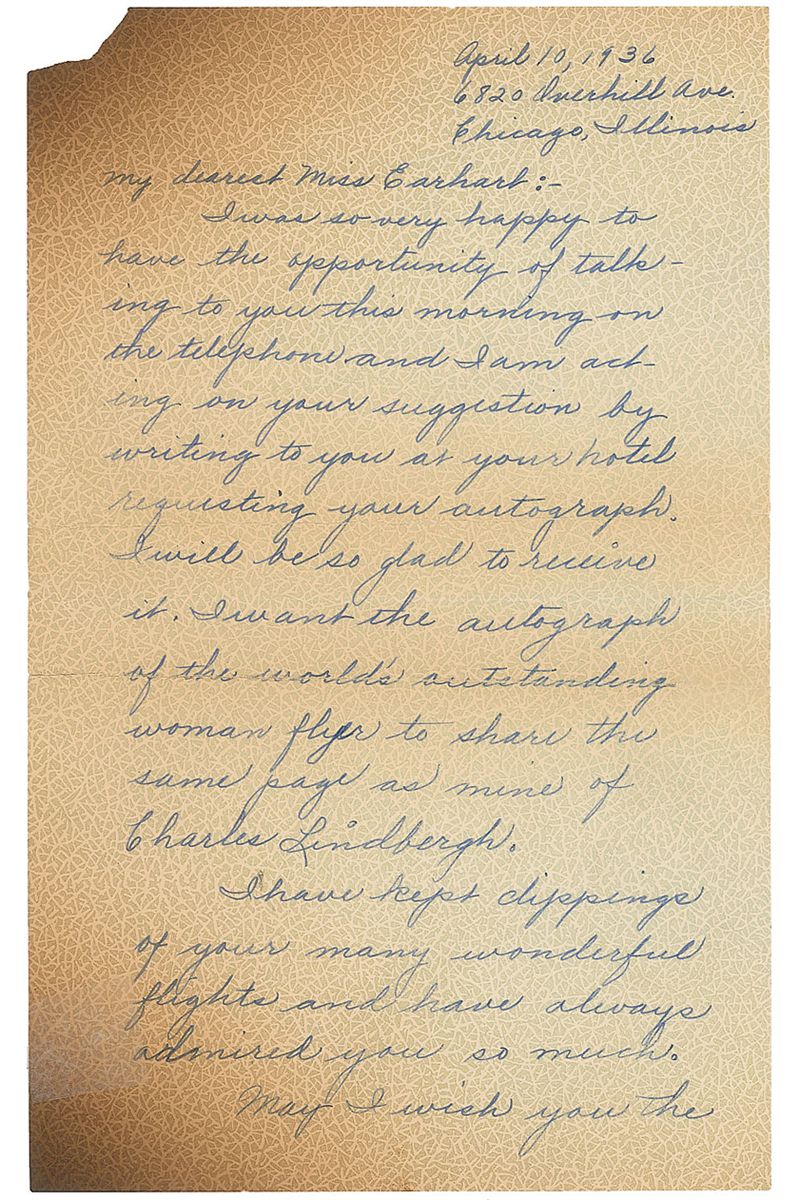 April 10, 1936
6820 Overhill Ave.
Chicago, Illinois
My dearest Miss Earhart:-
I was so very happy to
have the opportunity of talk-
ing to you this morning on
the telephone and I am act-
ing on your suggestion by
writing to you at your hotel
requesting your autograph.
I will be so glad to receive
it. I want the autograph
of the world's outstanding
woman flyer to share the
same page as mine of
Charles Lindbergh.
I have kept clippings
of your many wonderful
flights and have always
admired you so much.
May I wish you the